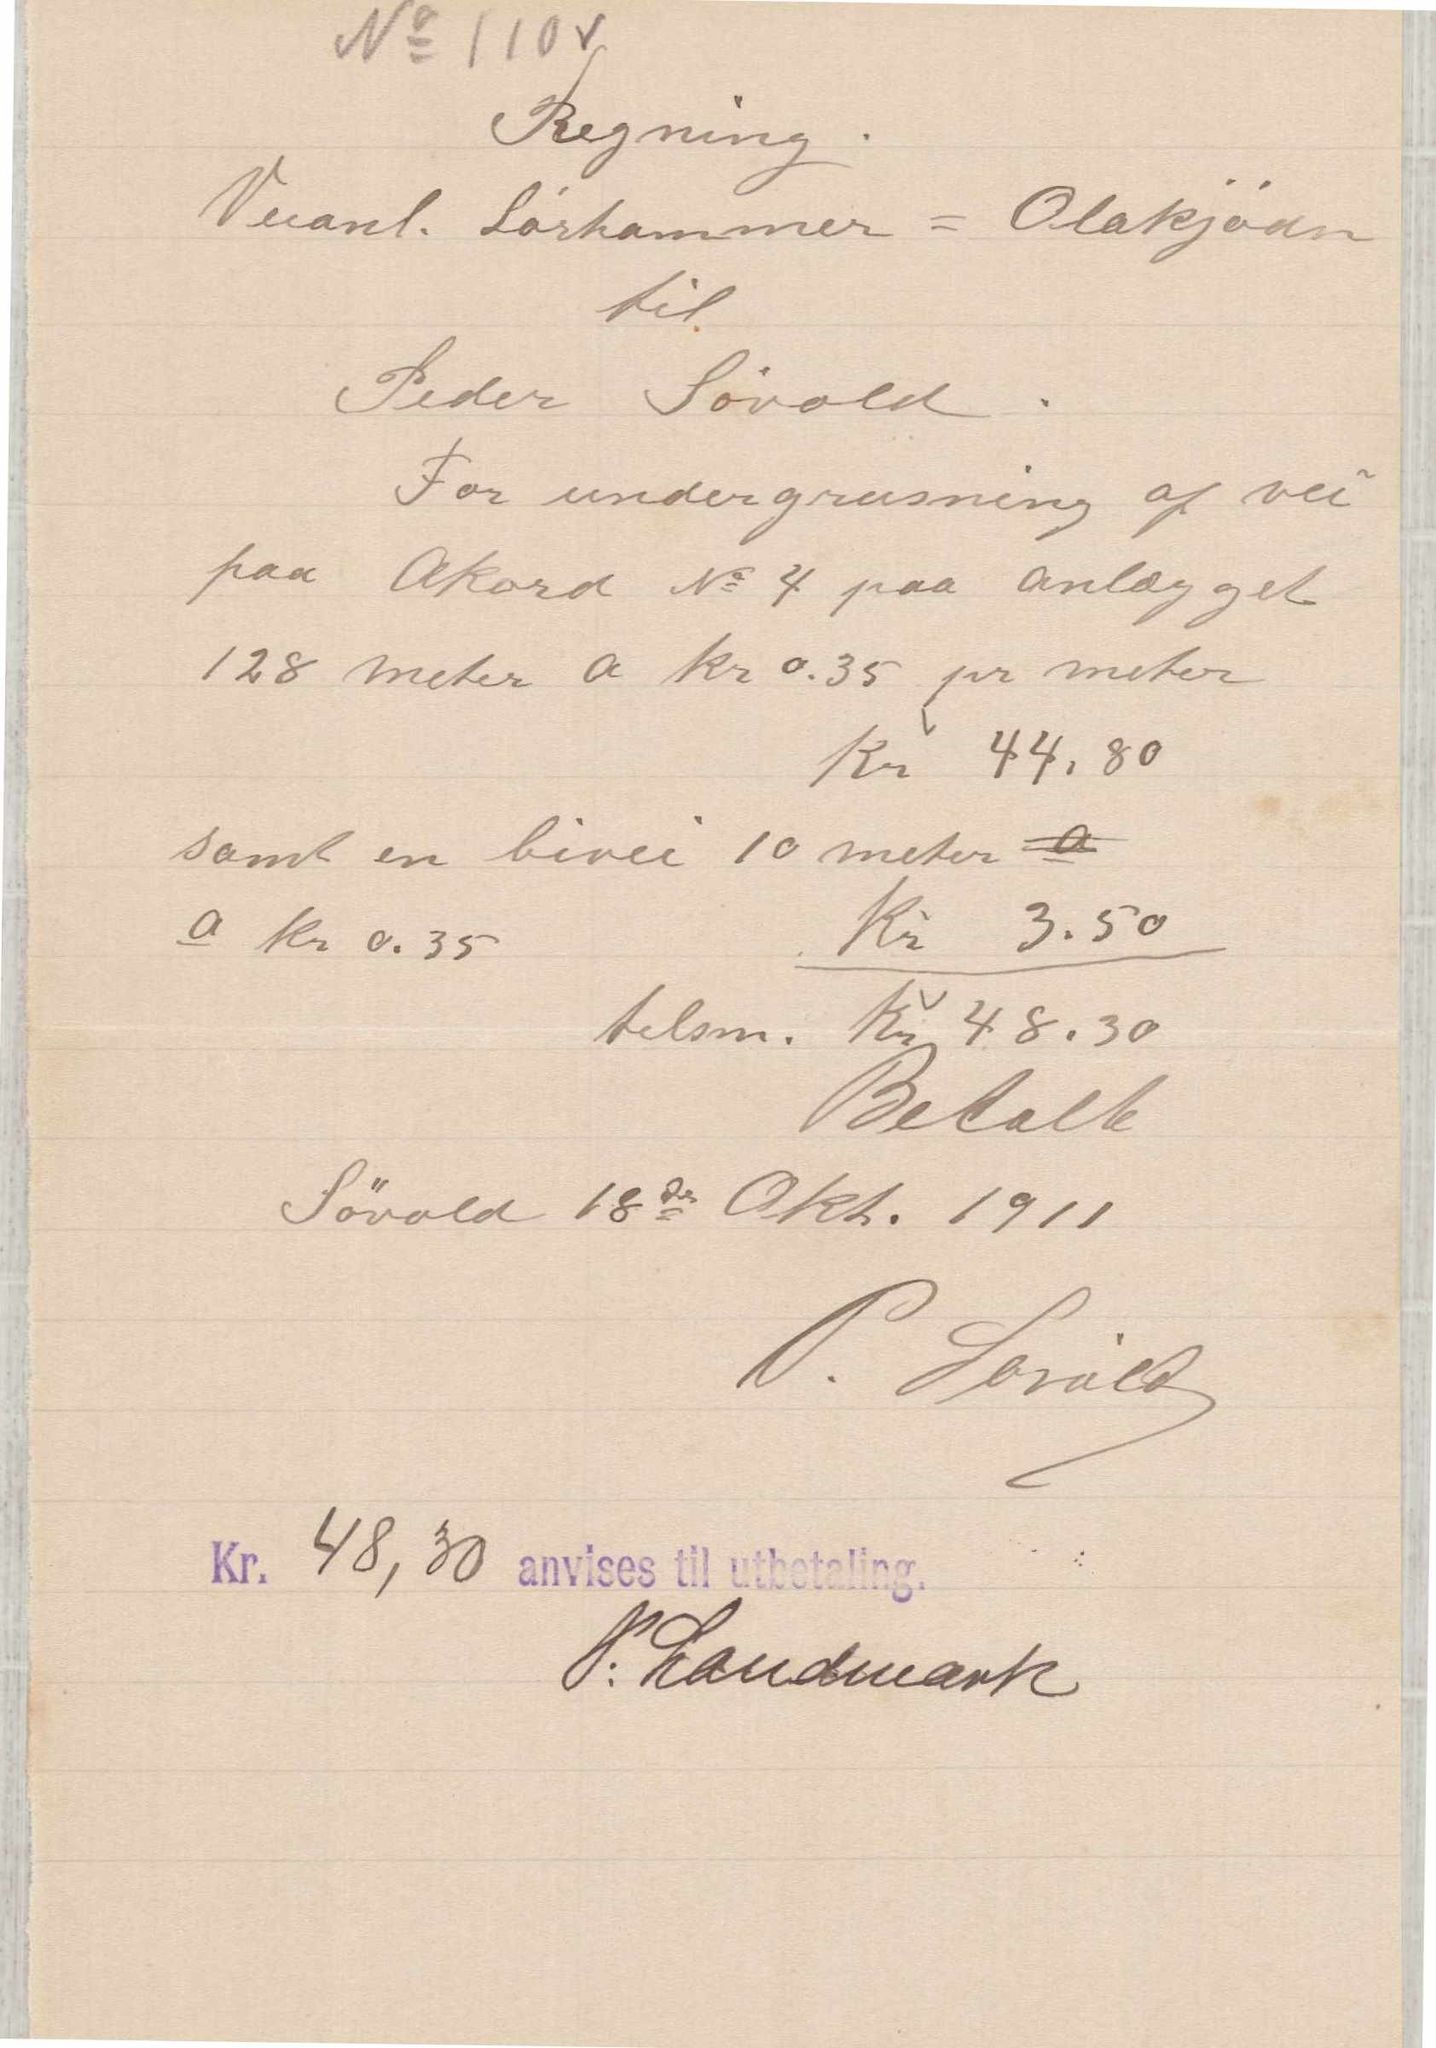 No 110
Regning.
Veianl. Sörhammer = Olakjödn
til
Peder Sövold.
For undergrusning af vei
paa Akord No 4 paa anlægget
128 meter a kr 0.35 pr meter
Kr 44.80
samt en bivei 10 meter a
a kr 0.35 Kr 3.50
tilsm. Kr 48.30
Betalt
Sövold 18de Okt. 1911
P. Sövold
Kr. 48,30 anvises til utbetaling.
N. Landmark